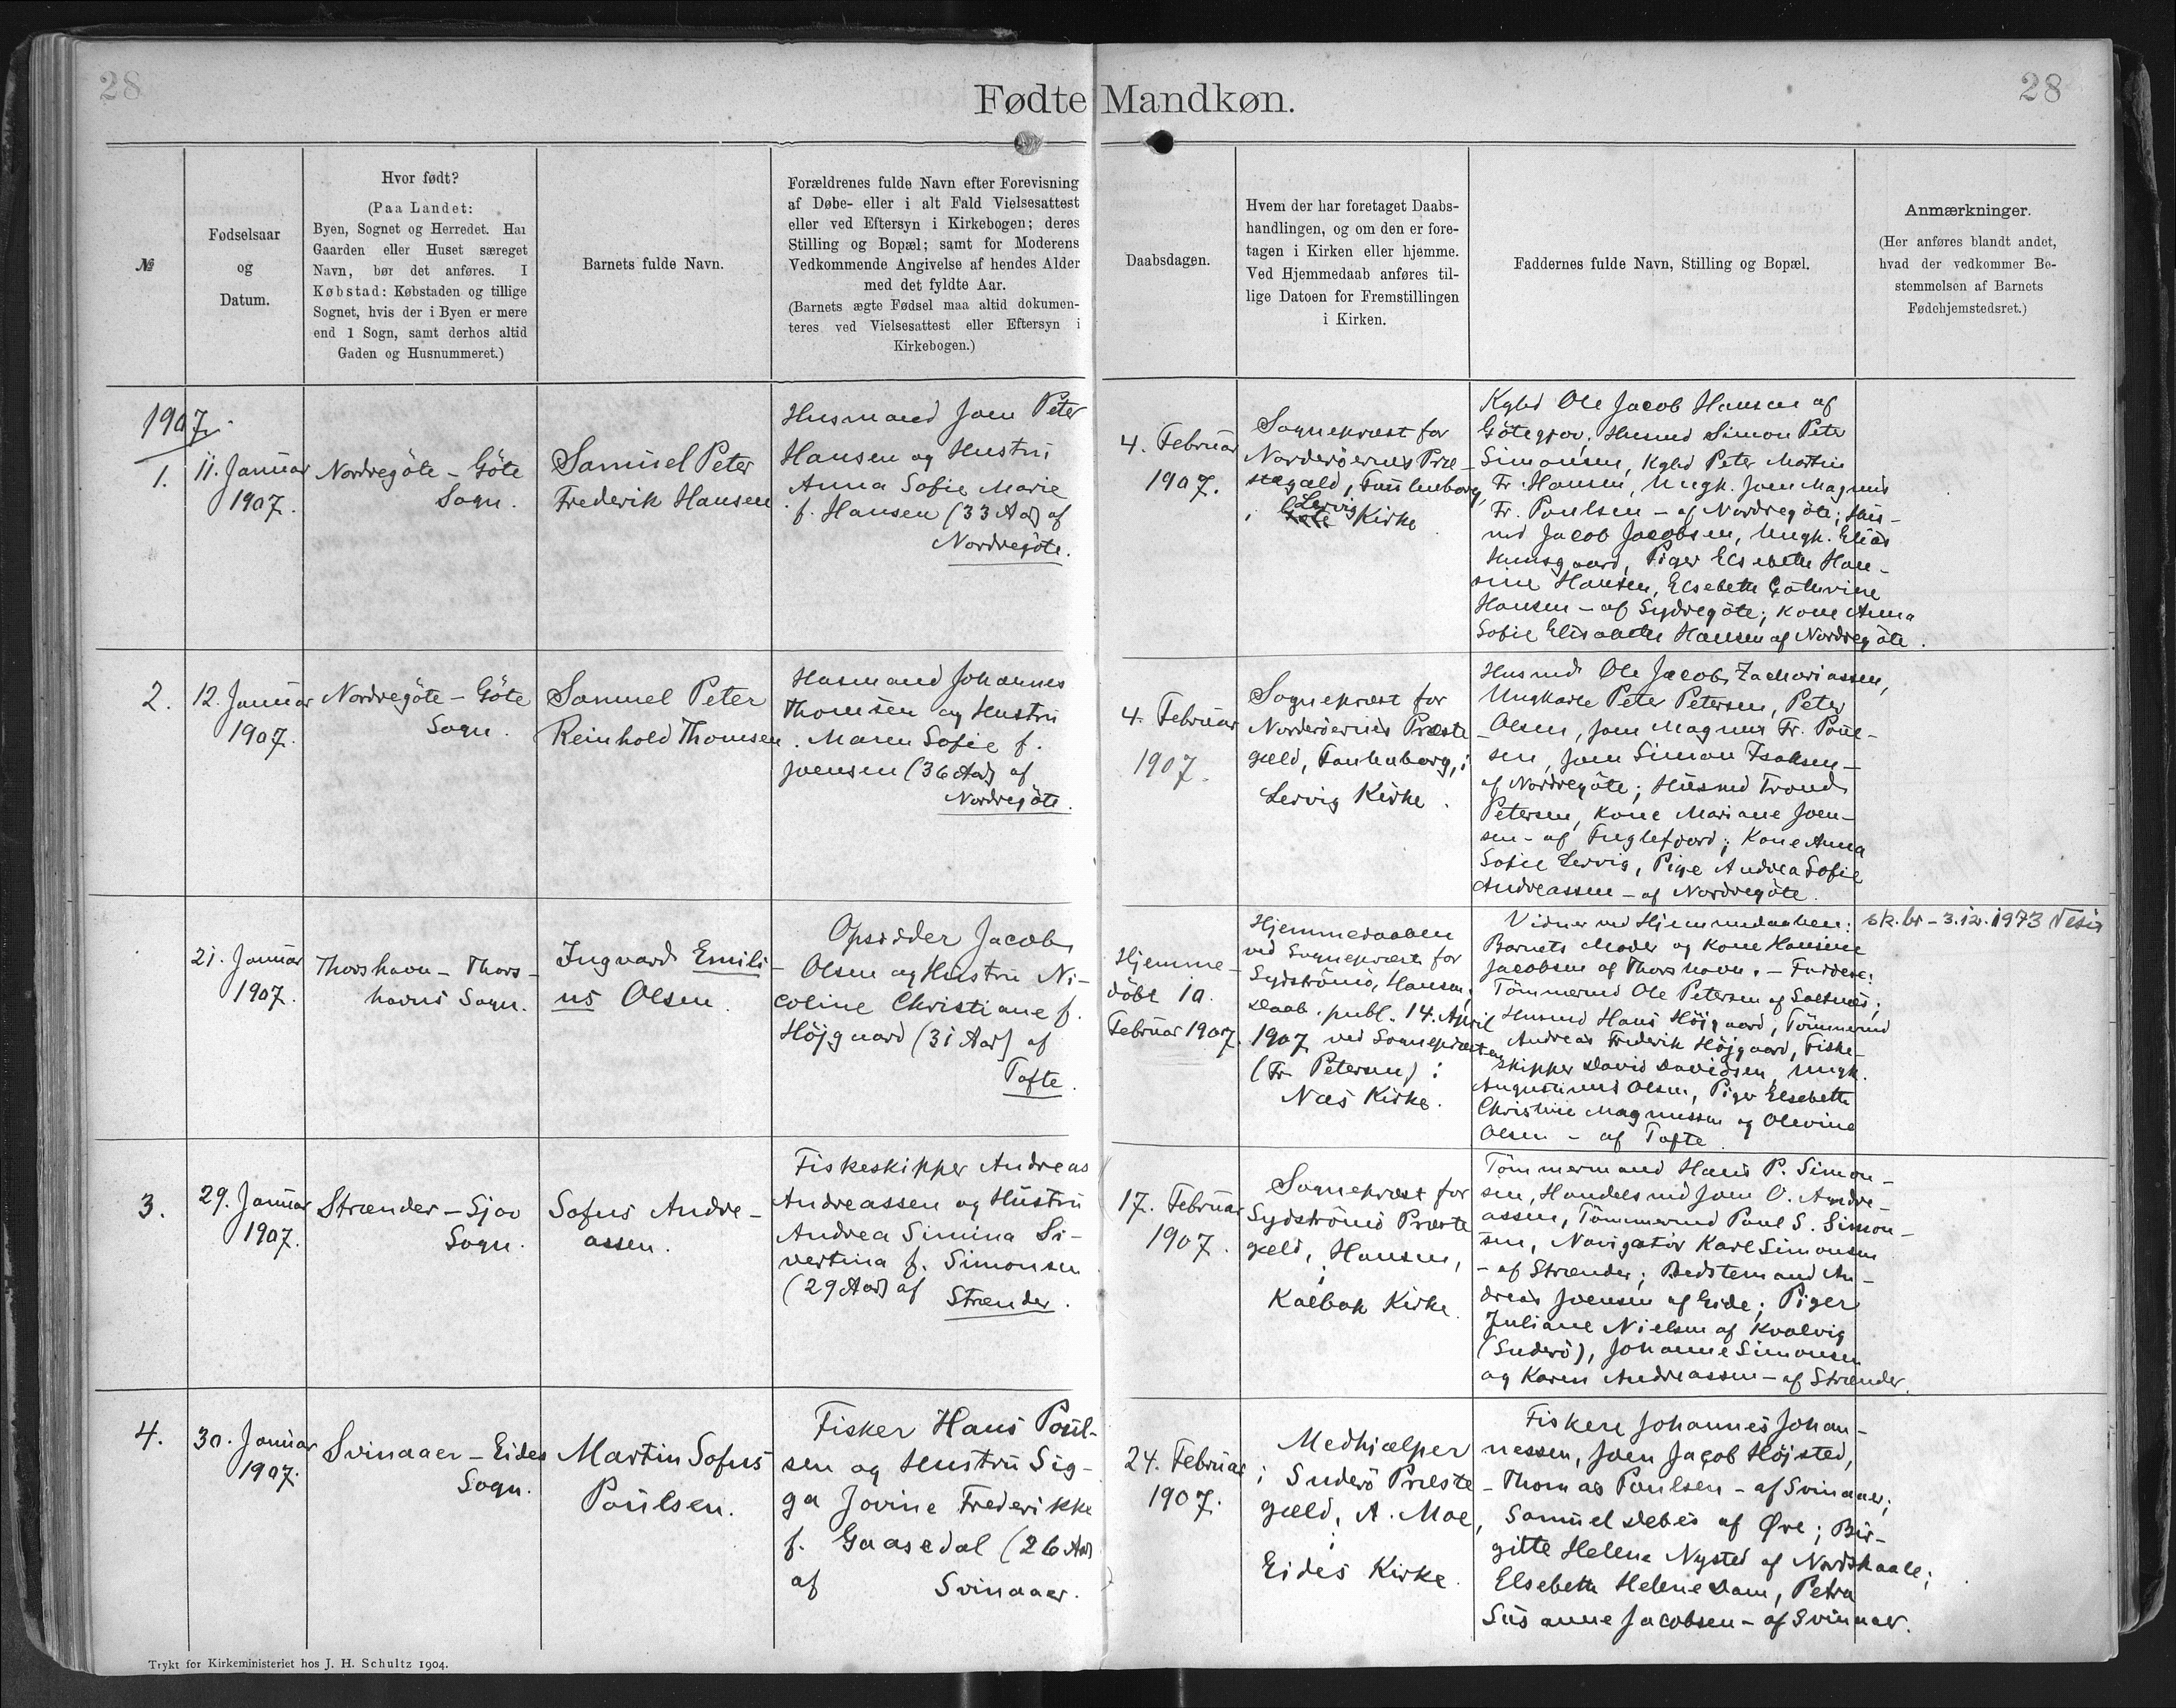 28
28
Fødte Mandkøn.
№
Fødselsaar
og
Datum.
Hvor født?
(Paa Landet:
Byen, Sognet og Herredet. Har
Gaarden eller Huset særeget
Navn, bør det anføres. I
Købstad: Købstaden og tillige
Sognet, hvis der i Byen er mere
end 1 Sogn, samt derhos altid
Gaden og Husnummeret.)
Barnets fulde Navn.
Forældrenes fulde Navn efter Forevisning
af Døbe- eller i alt Fald Vielsesattest
eller ved Eftersyn i Kirkebogen; deres
Stilling og Bopæl; samt for Moderens
Vedkommende Angivelse af hendes Alder
med det fyldte Aar.
(Barnets ægte Fødsel maa altid dokumen-
teres ved Vielsesattest eller Eftersyn i
Kirkebogen.)
Daabsdagen.
Hvem der har foretaget Daabs-
handlingen, og om den er fore-
tagen i Kirken eller hjemme.
Ved Hjemmedaab anføres til-
lige Datoen for Fremstillingen
i Kirken.
Faddernes fulde Navn, Stilling og Bopæl.
Anmærkninger.
(Her anføres blandt andet,
hvad der vedkommer Be-
stemmelsen af Barnets
Fødehjemstedsret.)
1907.
1.
11. Januar
1907.
Nordregöte - Göte
Sogn.
Samuel Peter
Frederik Hansen
Husmand Joen Peter
Hansen og Hustru
Anna Sofie Marie
f. Hansen (33 Aar) af
Nordregöte.
4. Februar
1907.
Sognepræst for
Norderöernes Præ-
stegæld, Faulenborg,
Lervig
i Göte Kirke
Kgbd Ole Jacob Hansen af
Götegjov, Husmd Simon Peter
Simonsen, Kgbd Peter Martin
Fr. Hansen, Ungk. Joen Magnus
Fr. Poulsen - af Nordregöte; Hus-
md Jacob Jacobsen, Ungk. Elias
Piger Elsebeth Han-
sine Hansen, Elsebeth Cathrine
Hansen - af Sydregöte; Kone Anna
Sofie Elisabeth Hansen af Nordregöte.
2.
12. Januar
1907.
Nordregöte - Göte
Sogn.
Samuel Peter
Reinhold Thomsen
Husmand Johannes
Thomsen og Hustru
Maren Sofie f.
Joensen (36 Aar) af
Nordregöte.
4. Februar
1907.
Sognepræst for
Norderöernes Præste
gæld, Faulenborg, i
Lervig Kirke.
Husmd Ole Jacob Zachariassen,
Ungkarle Peter Petersen, Peter
Olsen, Joen Magnus Fr. Poul-
sen, Joen Simon Isaksen -
af Nordregöte; Husmd Trond
Petersen, Kone Mariane Joen-
sen - af Fuglefjord; Kone Anna
Sofie Lervig, Pige Andrea Sofie
Andreassen - af Nordregöte.
21. Januar
1907.
Thorshavn - Thors-
havns Sogn.
Ingvard Emili-
us Olsen.
Opsidder Jacob
Olsen og Hustru Ni-
coline Christiane f.
Höjgaard (31 Aar) af
Tofte.
Hjemme-
döbt 10.
Februar 1907.
Hjemmedaaben
ved Sognepræst for
Sydströmö, Hansen;
Daab. publ. 14. April
1907 ved Sognepræsten
(Fr. Petersen) i
Næs Kirke.
Vidner ved Hjemmedaaben:
Barnets Moder og Kone Hansine
Jacobsen af Thorshavn. - Faddere:
Tömmermd Ole Petersen af Saltnæs;
Husmd Hans Höjgaard, Tömmermd
Andreas Frederik Höjgaard, Fiske-
skipper David Davidsen, Ungk.
Augustinus Olsen, Piger Elsebeth
Christine Magnussen og Olevine
Olsen - af Tofte.
3.12.1973
3.
29. Januar
1907.
Strænder - Sjov
Sogn.
Sofus Andre-
assen.
Fiskeskipper Andreas
Andreassen og Hustru
Andrea Simina Si-
vertina f. Simonsen
(29 Aar) af
Strænder.
17. Februar
1907.
Sognepræst for
Sydströmö Præste
gæld, Hansen,
i
Kolbak Kirke.
Tömmermand Hans P. Simon-
sen, Handelsmd Joen O. Andre-
assen, Tömmermd Poul S. Simon-
sen, Navigatör Karl Simonsen
- af Strænder; Bedstemand An-
dreas Joensen af Eide; Piger
Juliane Nielsen af Kvalvig
(Suderö), Johanne Simonsen
og Karen Andreassen - af Strænder.
4.
30. Januar
1907.
Svinaaer - Eides
Sogn.
Martin Sofus
Poulsen.
Fisker Hans Poul-
sen og Hustru Sig-
ga Jovine Frederikke
f. Gaasedal (26 Aar)
af Svinaaer.
24. Februar
1907.
Medhjælper
i Suderö Præste
gæld, A. Moe,
i
Eides Kirke.
Fiskere Johannes Johan-
nessen, Joen Jacob Höjsted,
Thomas Poulsen - af Svinaaer;
Samuel Debes af Øre; Bir-
gitte Helene Nysted af Nordskaale;
Elsebeth Helene Dam, Petra
Susanne Jacobsen - af Svinaaer.
Trykt for Kirkeministeriet hos J. H. Schultz 1904.